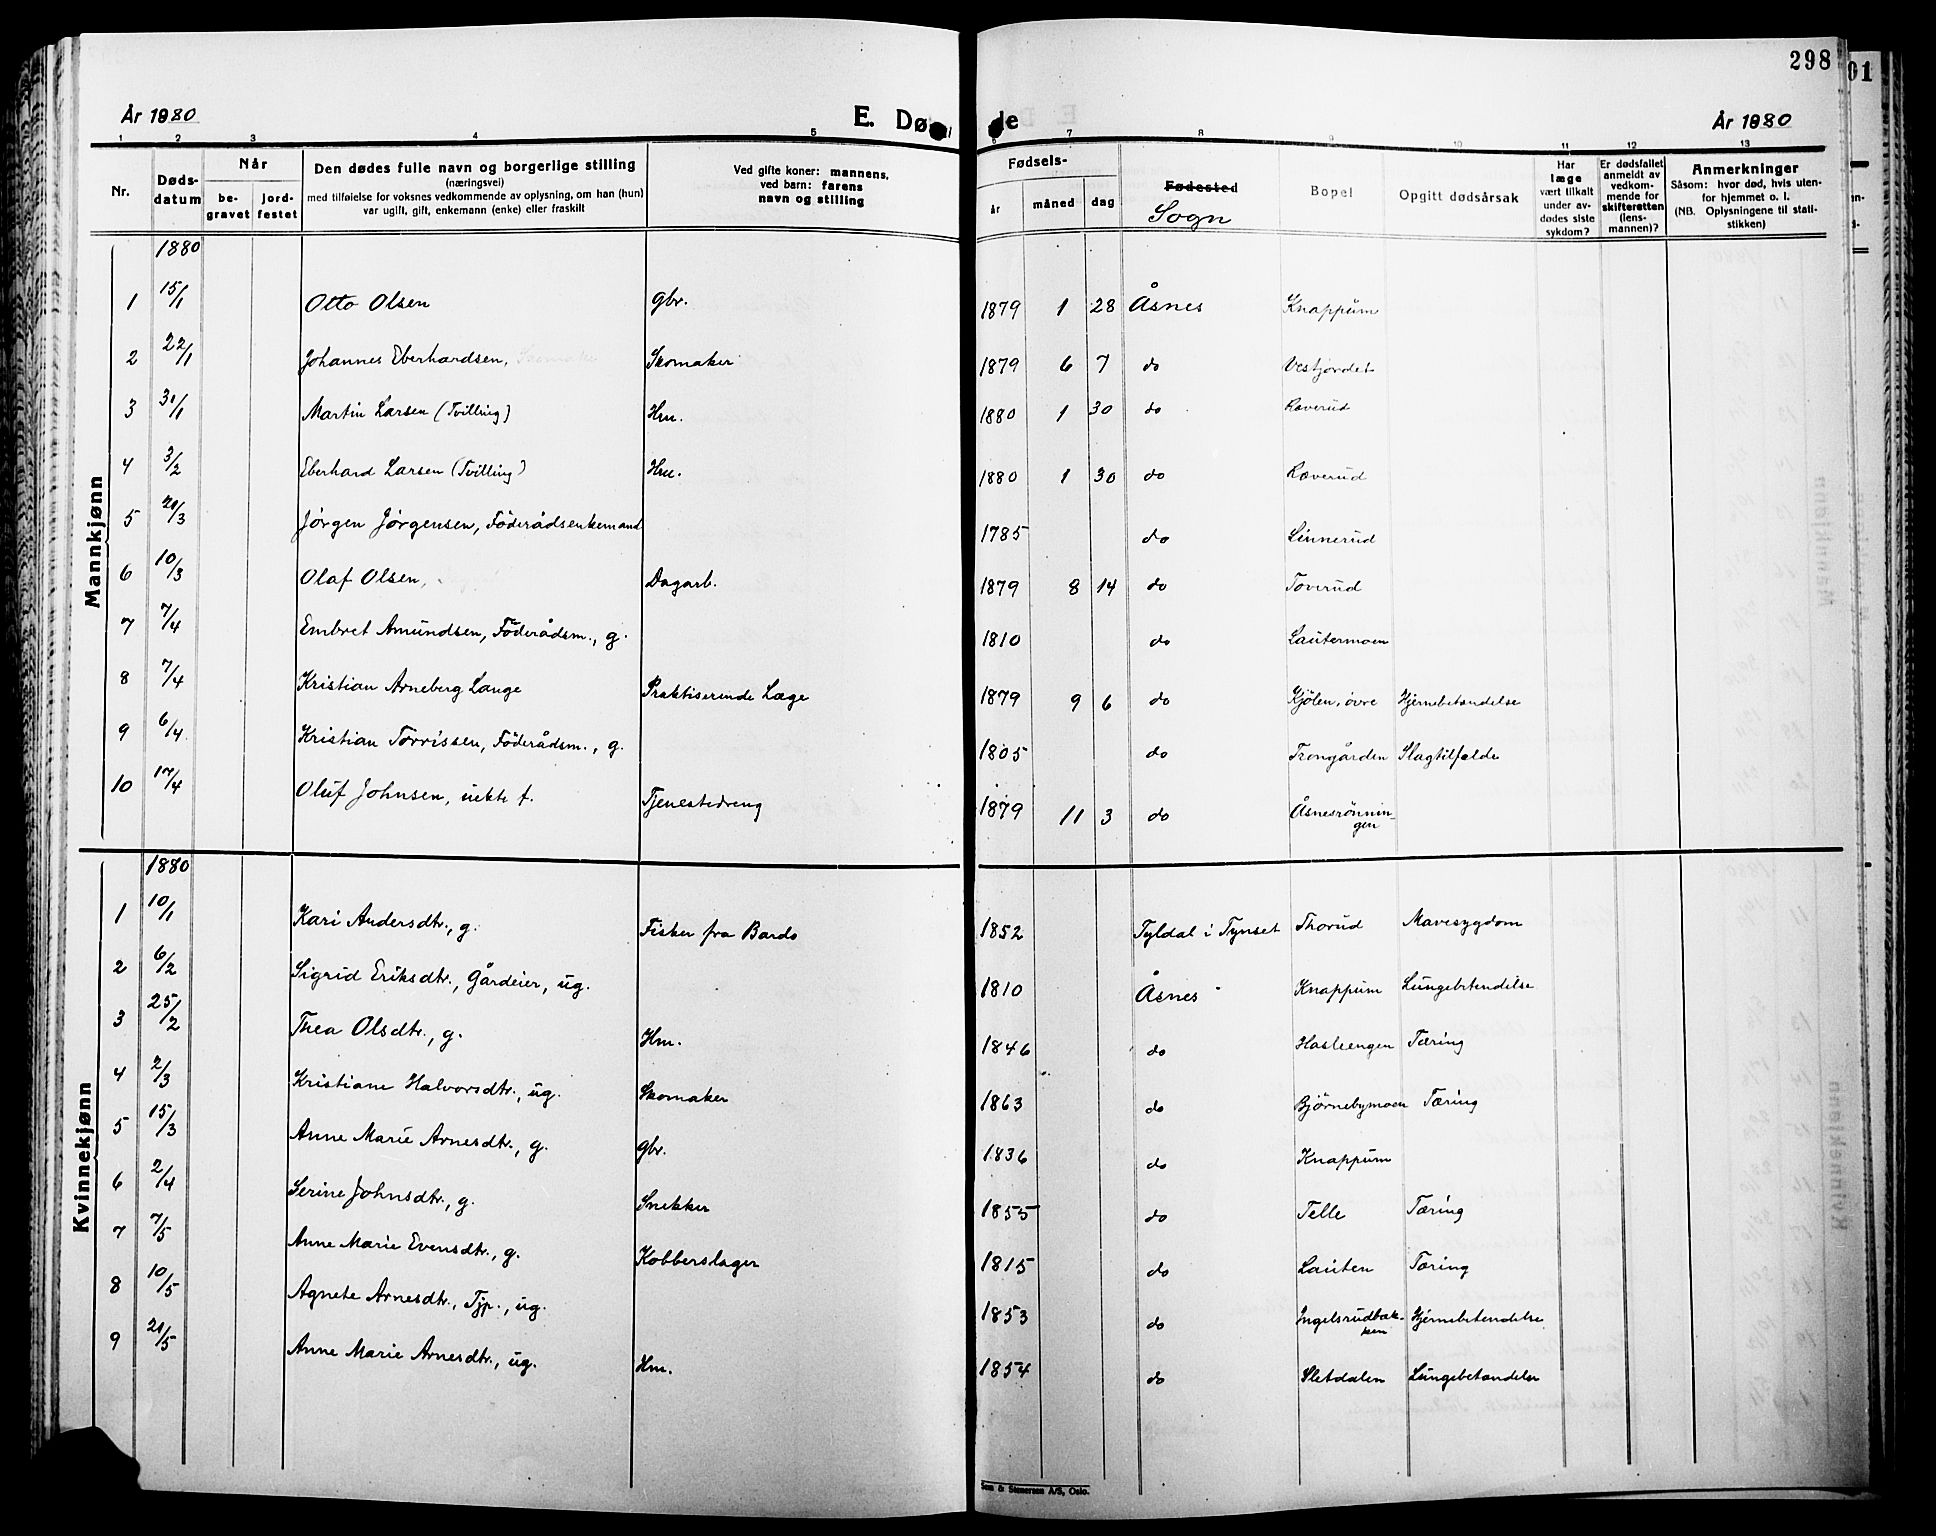 298
01
År 1880
E. Dø de
År 1880
1 2 3 4 5 7 8 9 10 11 12 13
Nr.
Døds-
datum
Når
be-
gravet
jord-
festet
Den dødes fulle navn og borgerlige stilling
(næringsvei)
med tilføielse for voksnes vedkommende av oplysning, om han (hun)
var ugift, gift, enkemann (enke) eller fraskilt
Ved gifte koner: mannens,
ved barn: farens
navn og stilling
Fødsels-
år måned dag
Fødested
Sogn
Bopel
Opgitt dødsårsak
Har
læge
vært tilkalt
under av-
dødes siste
sykdom?
Er dødsfallet
anmeldt av
vedkom-
mende for
skifteretten
(lens-
mannen)?
Anmerkninger
Såsom: hvor død, hvis uten-
for hjemmet o. l.
(NB. Oplysningene til stati-
stikken)
Mannkjønn
1880
1 15/1 Otto Olsen gbr. 1879 1 28 Åsnes Knappum
2 22/1 Johannes Eberhardsen, Skomaker 1879 6 7 do Vestjordet
3 31/1 Martin Larsen (Tvilling) Hm. 1880 1 30 do Ræverud
4 3/2 Eberhard Larsen (Tvilling) Hm. 1880 1 30 do Ræverud
5 20/3 Jørgen Jørgensen, Föderådsenkemand 1785 do Linnerud
6 10/3 Olaf Olsen, Dagarb. 1879 8 14 do Toverud
7 7/4 Embret Amundsen, Föderådsm., g. 1810 do Lautermoen
8 7/4 Kristian Arneberg Lange Praktiserende Læge 1879 9 6 do Kjölen, övre Hjernebetændelse
9 6/4 Kristian Torrissen, Föderådsm., g. 1805 do Trongården Slagtilfælde
10 17/4 Oluf Johnsen, uekte f. Tjenestedreng 1879 11 3 do Åsnesrönnin-
gen
Kvinnekjønn
1880
1 10/1 Kari Andersdtr., g. Fisker fra Bardo 1852 Tyldal i Tynset Thorud Mavesygdom
2 6/2 Sigrid Eriksdtr., Gårdeier, ug. 1810 Åsnes Knappum Lungebetendelse
3 25/2 Thea Olsdtr., g. Hm. 1846 do Hasleengen Tæring
4 2/3 Kristiane Halvorsdtr., ug. Skomaker 1863 do Bjørnebymoen Tæring
5 15/3 Anne Marie Arnesdtr., g. gbr. 1836 do Knappum
6 2/4 Serine Johnsdtr., g. Snekker 1855 do Telle Tæring
7 7/5 Anne Marie Evensdtr., g. Kobberslager 1815 do Lauten Tæring
8 10/5 Agnete Arnesdtr., Tjp., ug. 1853 do Ingelsrudbak-
ken Hjernebetendelse
9 21/5 Anne Marie Arnesdtr., ug. Hm. 1854 do Sletdalen Lungebetændelse
Sem & Stenersen A/S, Oslo.